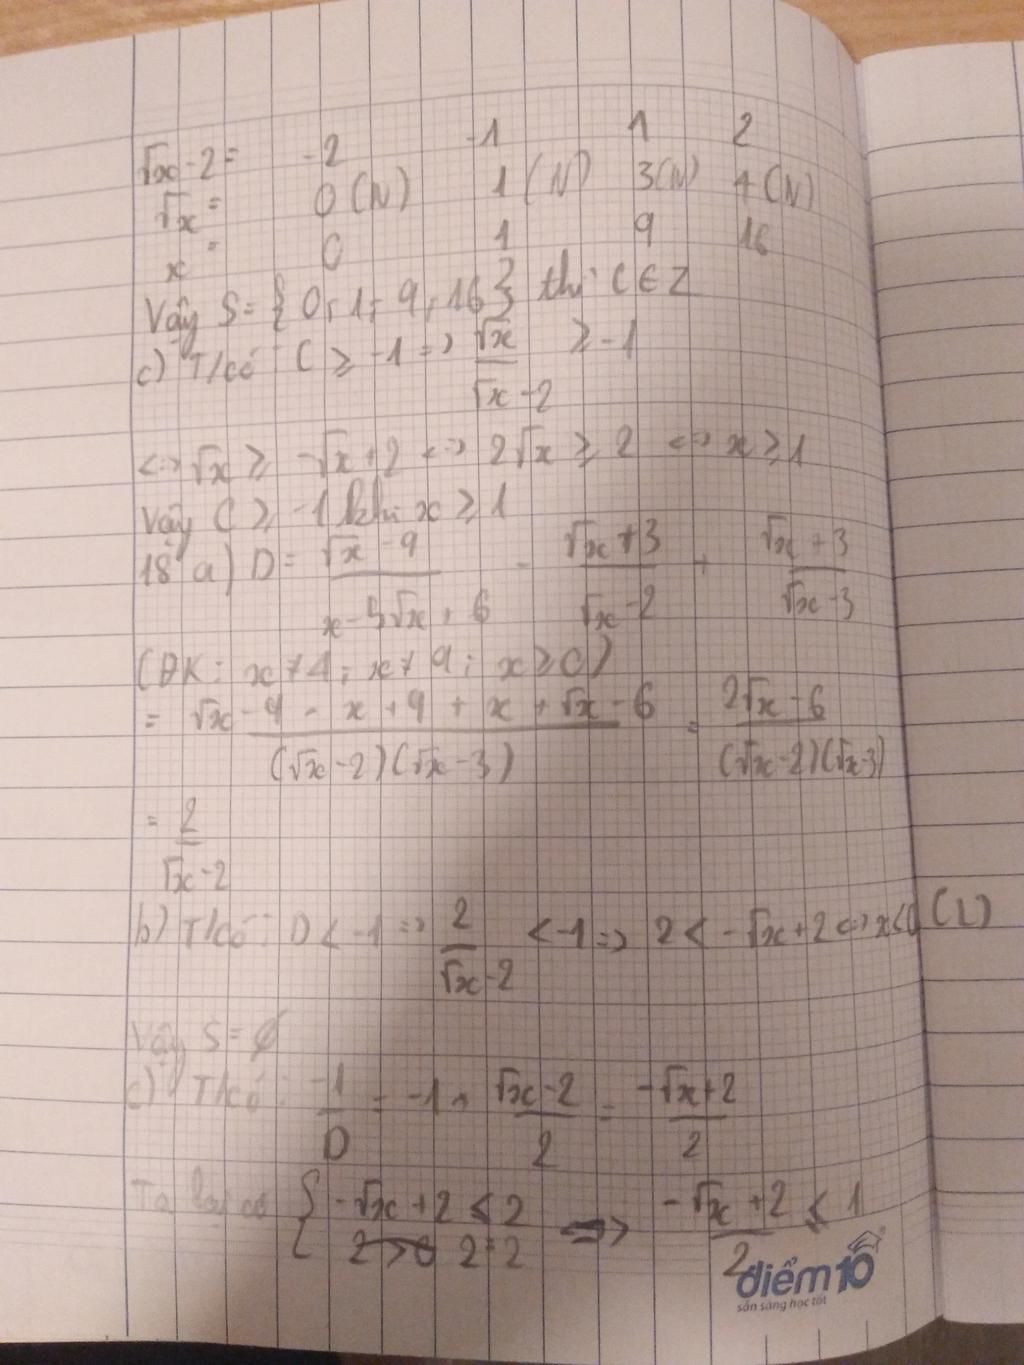 √x - 2 = -2 -1 1 2
√x = 0 (N) 1 (N) 3(N) 4 (N)
x = 0 1 9 16
Vậy S = { 0 ; 1 ; 9 ; 16 } thì C ∈ Z
c) T/có : C ≥ -1 => √x / (√x - 2) ≥ -1
<=> √x ≥ -√x + 2 <=> 2√x ≥ 2 <=> x ≥ 1
Vậy C ≥ -1 khi x ≥ 1
18 a) D = (√x - 9) / (x - 5√x + 6) - (√x + 3) / (√x - 2) + (√x + 3) / (√x - 3)
(ĐK : x ≠ 4 ; x ≠ 9 ; x ≥ 0)
= (√x - 9 - x + 9 + x + √x - 6) / ((√x - 2)(√x - 3)) = (2√x - 6) / ((√x - 2)(√x - 3))
= 2 / (√x - 2)
b) T/có : D < -1 => 2 / (√x - 2) < -1 => 2 < -√x + 2 <=> x < 0 (L)
Vậy S = ∅
c) T/có : -1 / D = -1 . (√x - 2) / 2 = (-√x + 2) / 2
Ta lại có { -√x + 2 ≤ 2 ; 2 = 2 => (-√x + 2) / 2 ≤ 1
điểm10
sẵn sàng học tốt